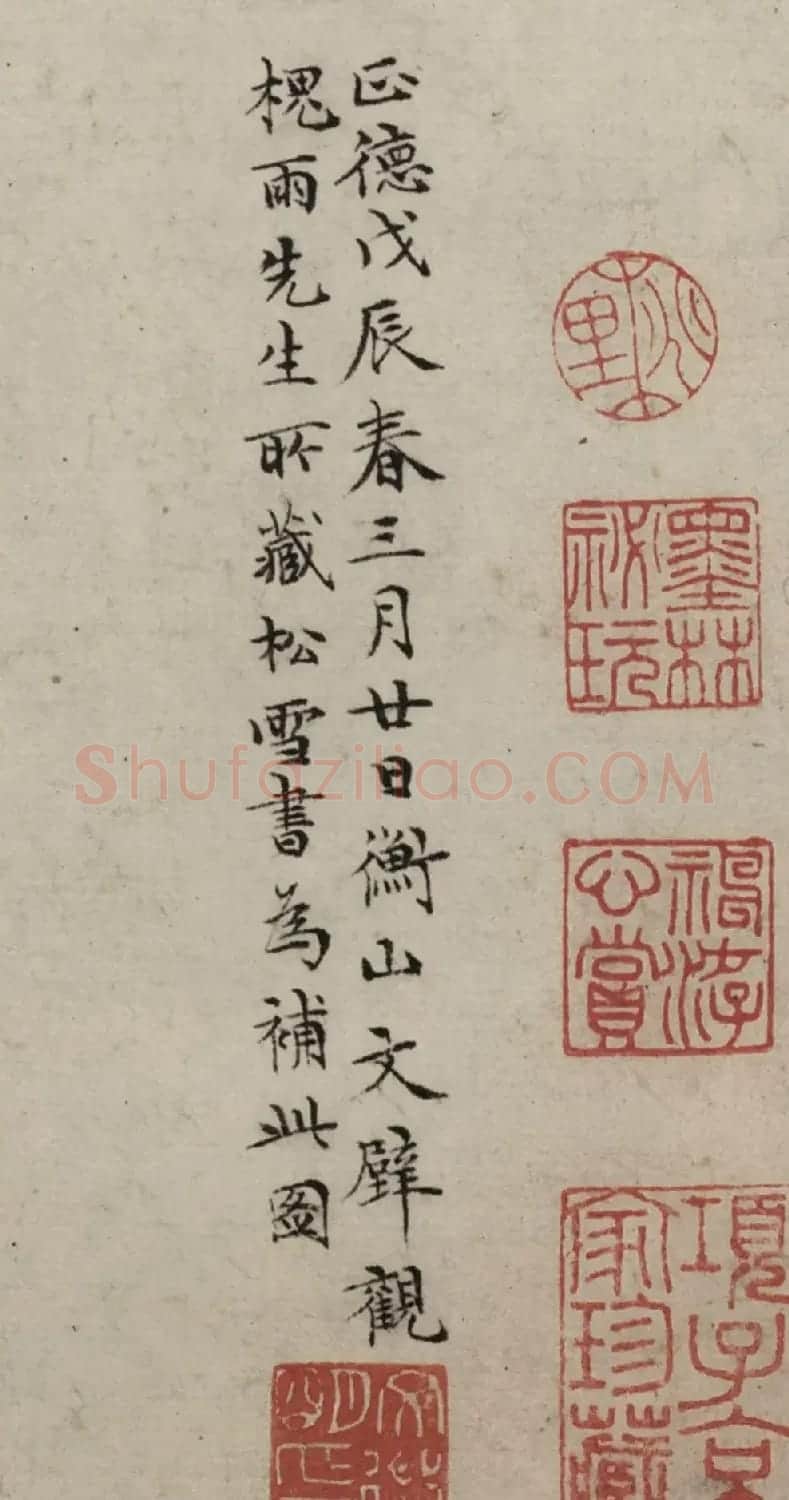 正德戊辰春三月廿日衡山文壁觀
槐雨先生所藏松雪書為補此圖
墨林
祕玩
公賞
項子京
家珍藏
Shufaziliao.COM